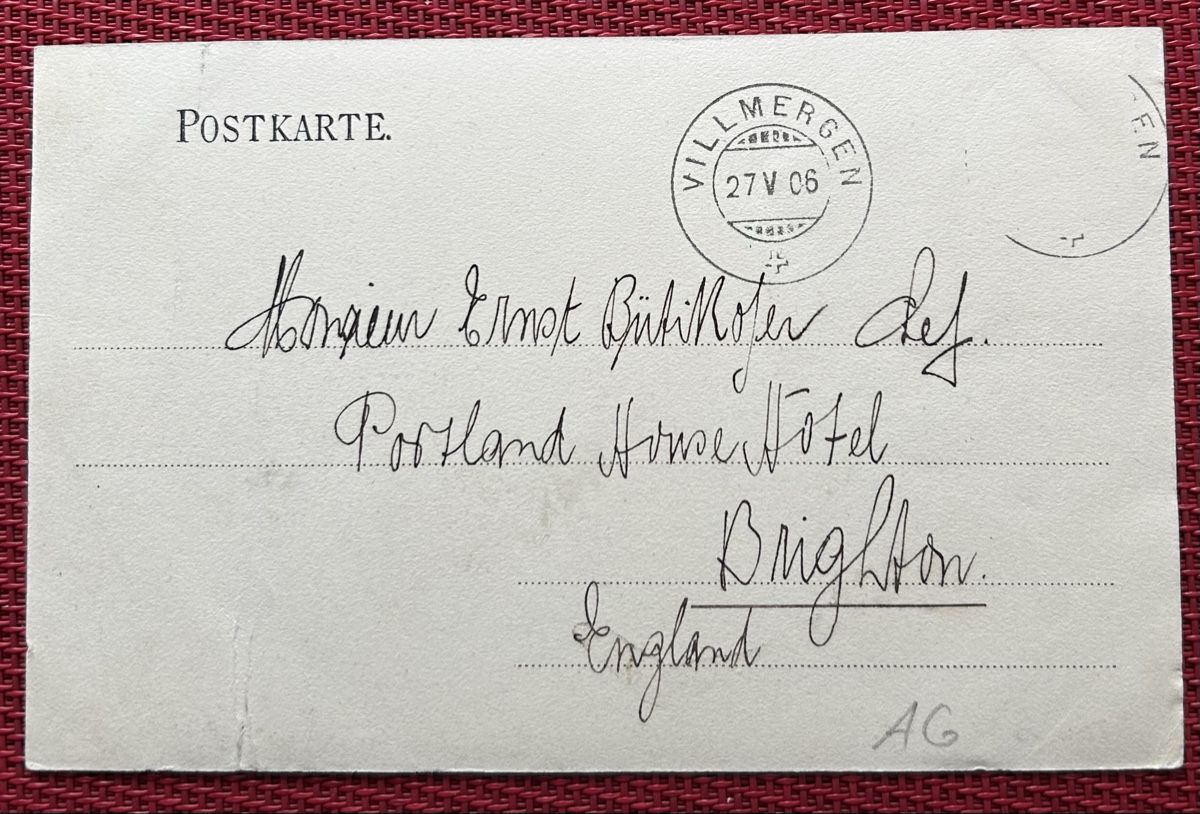 POSTKARTE.
VILLMERGEN
27 V 06
EN
Monsieur Ernst Bütikofer Chef.
Portland House Hôtel
Brighton.
England
AG